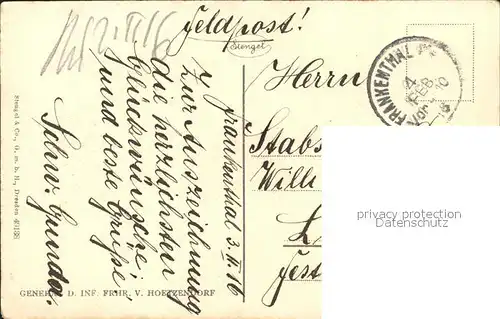 Feldpost!
Stengel
Frankenthal 3.II.16
Zur Auszeichnung
die herzlichsten
Glückwünsche
und beste Grüße.
Schw. Gunda.
Herrn
Stabs
Willi
Fest
FRANKENTHAL
4 FEB
Stengel & Co., G. m. b. H., Dresden
GENERAL D. INF. FRHR. V. HOETZENDORF
privacy protection
Datenschutz